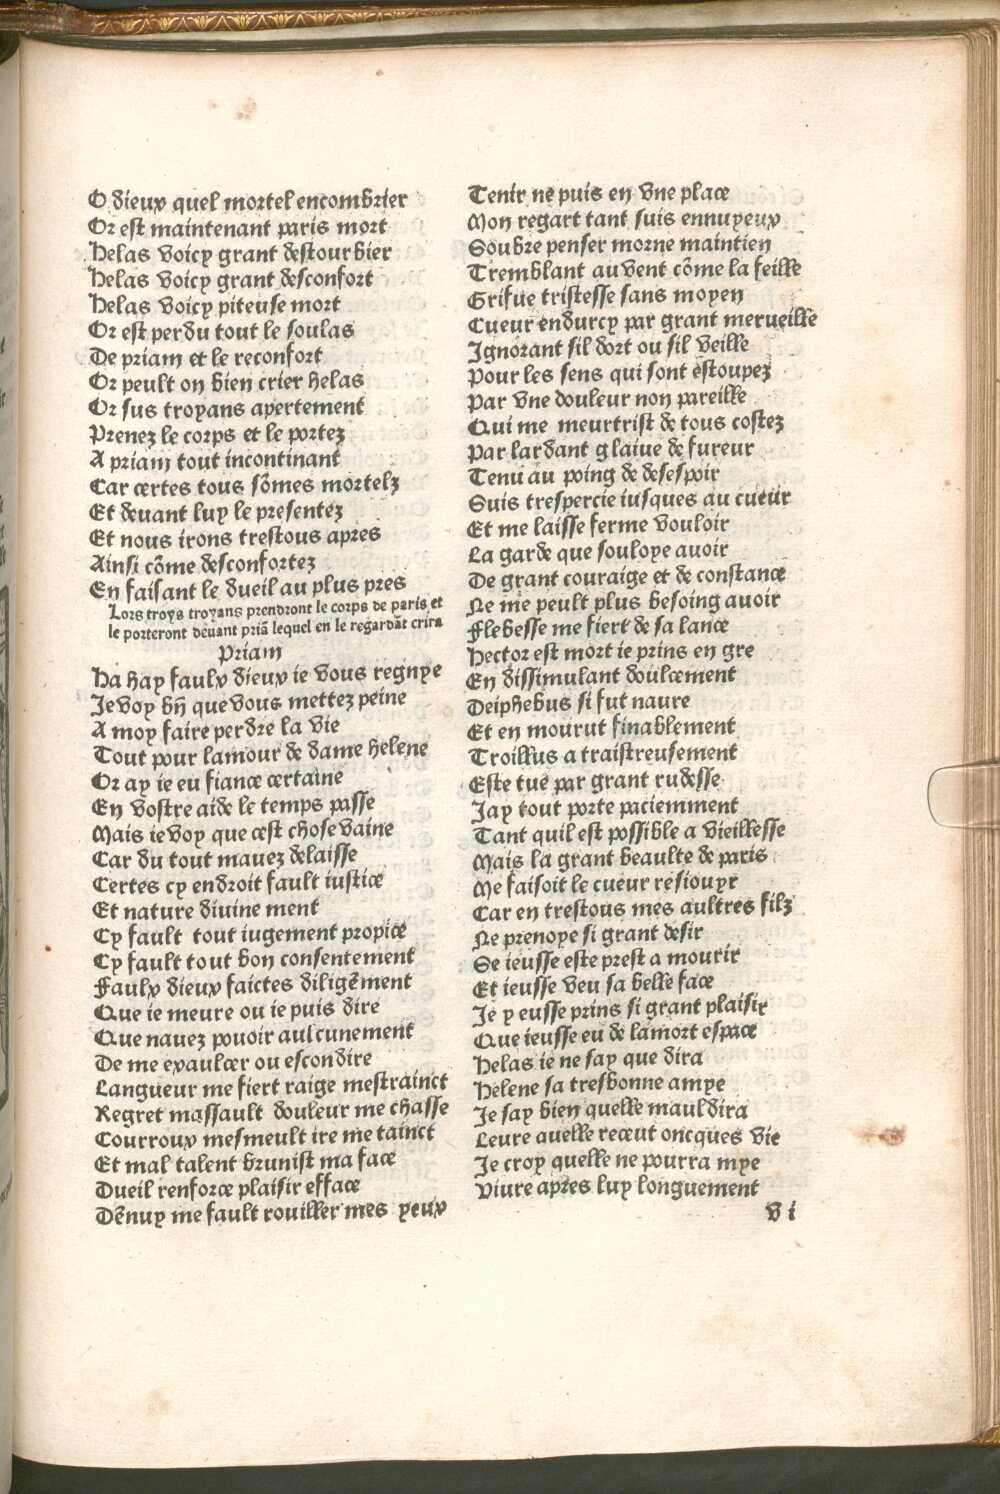 O dieux quel mortel encombrier
Or est maintenant paris mort
Helas voicy grant destourbier
Helas voicy grant desconfort
Helas voicy piteuse mort
Or est perdu tout le soulas
De priam et le reconfort
Or peult on bien crier helas
Or sus troyans apertement
Prenez le corps et le portez
A priam tout incontinant
Car certes tous sõmes mortelz
Et devant luy le presentez
Et nous irons trestous apres
Ainsi cõme desconfortez
En faisant le dueil au plus pres
Lors troys troyans prendront le corps de paris et
le porteront devant priã lequel en le regardãt crira
Priam
Ha hay faulx dieux ie vous regnye
Je voy bñ que vous mettez peine
A moy faire perdre la vie
Tout pour lamour de dame helene
Or ay ie eu fiance certaine
En vostre aide le temps passe
Mais ie voy que cest chose vaine
Car du tout mavez delaisse
Certes cy endroit fault iustice
Et nature divine ment
Cy fault tout iugement propice
Cy fault tout bon consentement
Faulx dieux faictes diligẽment
Que ie meure ou ie puis dire
Que navez povoir aulcunement
De me exaulcer ou escondire
Langueur me fiert raige mestrainct
Regret massault douleur me chasse
Courroux mesmeult ire me tainct
Et mal talent brunist ma face
Dueil renforce plaisir efface
Dẽnuy me fault rouiller mes yeux
Tenir ne puis en vne place
Mon regart tant suis ennuyeux
Soubre penser morne maintien
Tremblant au vent cõme la feille
Grifue tristesse sans moyen
Cueur endurcy par grant merveille
Ignorant sil dort ou sil veille
Pour les sens qui sont estoupez
Par vne douleur non pareille
Qui me meurtrist de tous costez
Par lardant glaiue de fureur
Tenu au poing de desespoir
Suis trespercie iusques au cueur
Et me laisse ferme vouloir
La garde que souloye auoir
De grant couraige et de constance
Ne me peult plus besoing auoir
Flebesse me fiert de sa lance
Hector est mort ie prins en gre
En dissimulant doulcement
Deiphebus si fut naure
Et en mourut finablement
Troillus a traistreusement
Este tue par grant rudesse
Jay tout porte paciemment
Tant quil est possible a vieillesse
Mais la grant beaulte de paris
Me faisoit le cueur resiouyr
Car en trestous mes aultres filz
Ne prenoye si grant desir
Se ieusse este prest a mourir
Et ieusse veu sa belle face
Je y eusse prins si grant plaisir
Que ieusse eu de lamort espace
Helas ie ne say que dira
Helene sa tresbonne amye
Je say bien quelle mauldira
Leure quelle receut oncques vie
Je croy quelle ne pourra mye
Viure apres luy longuement
v i